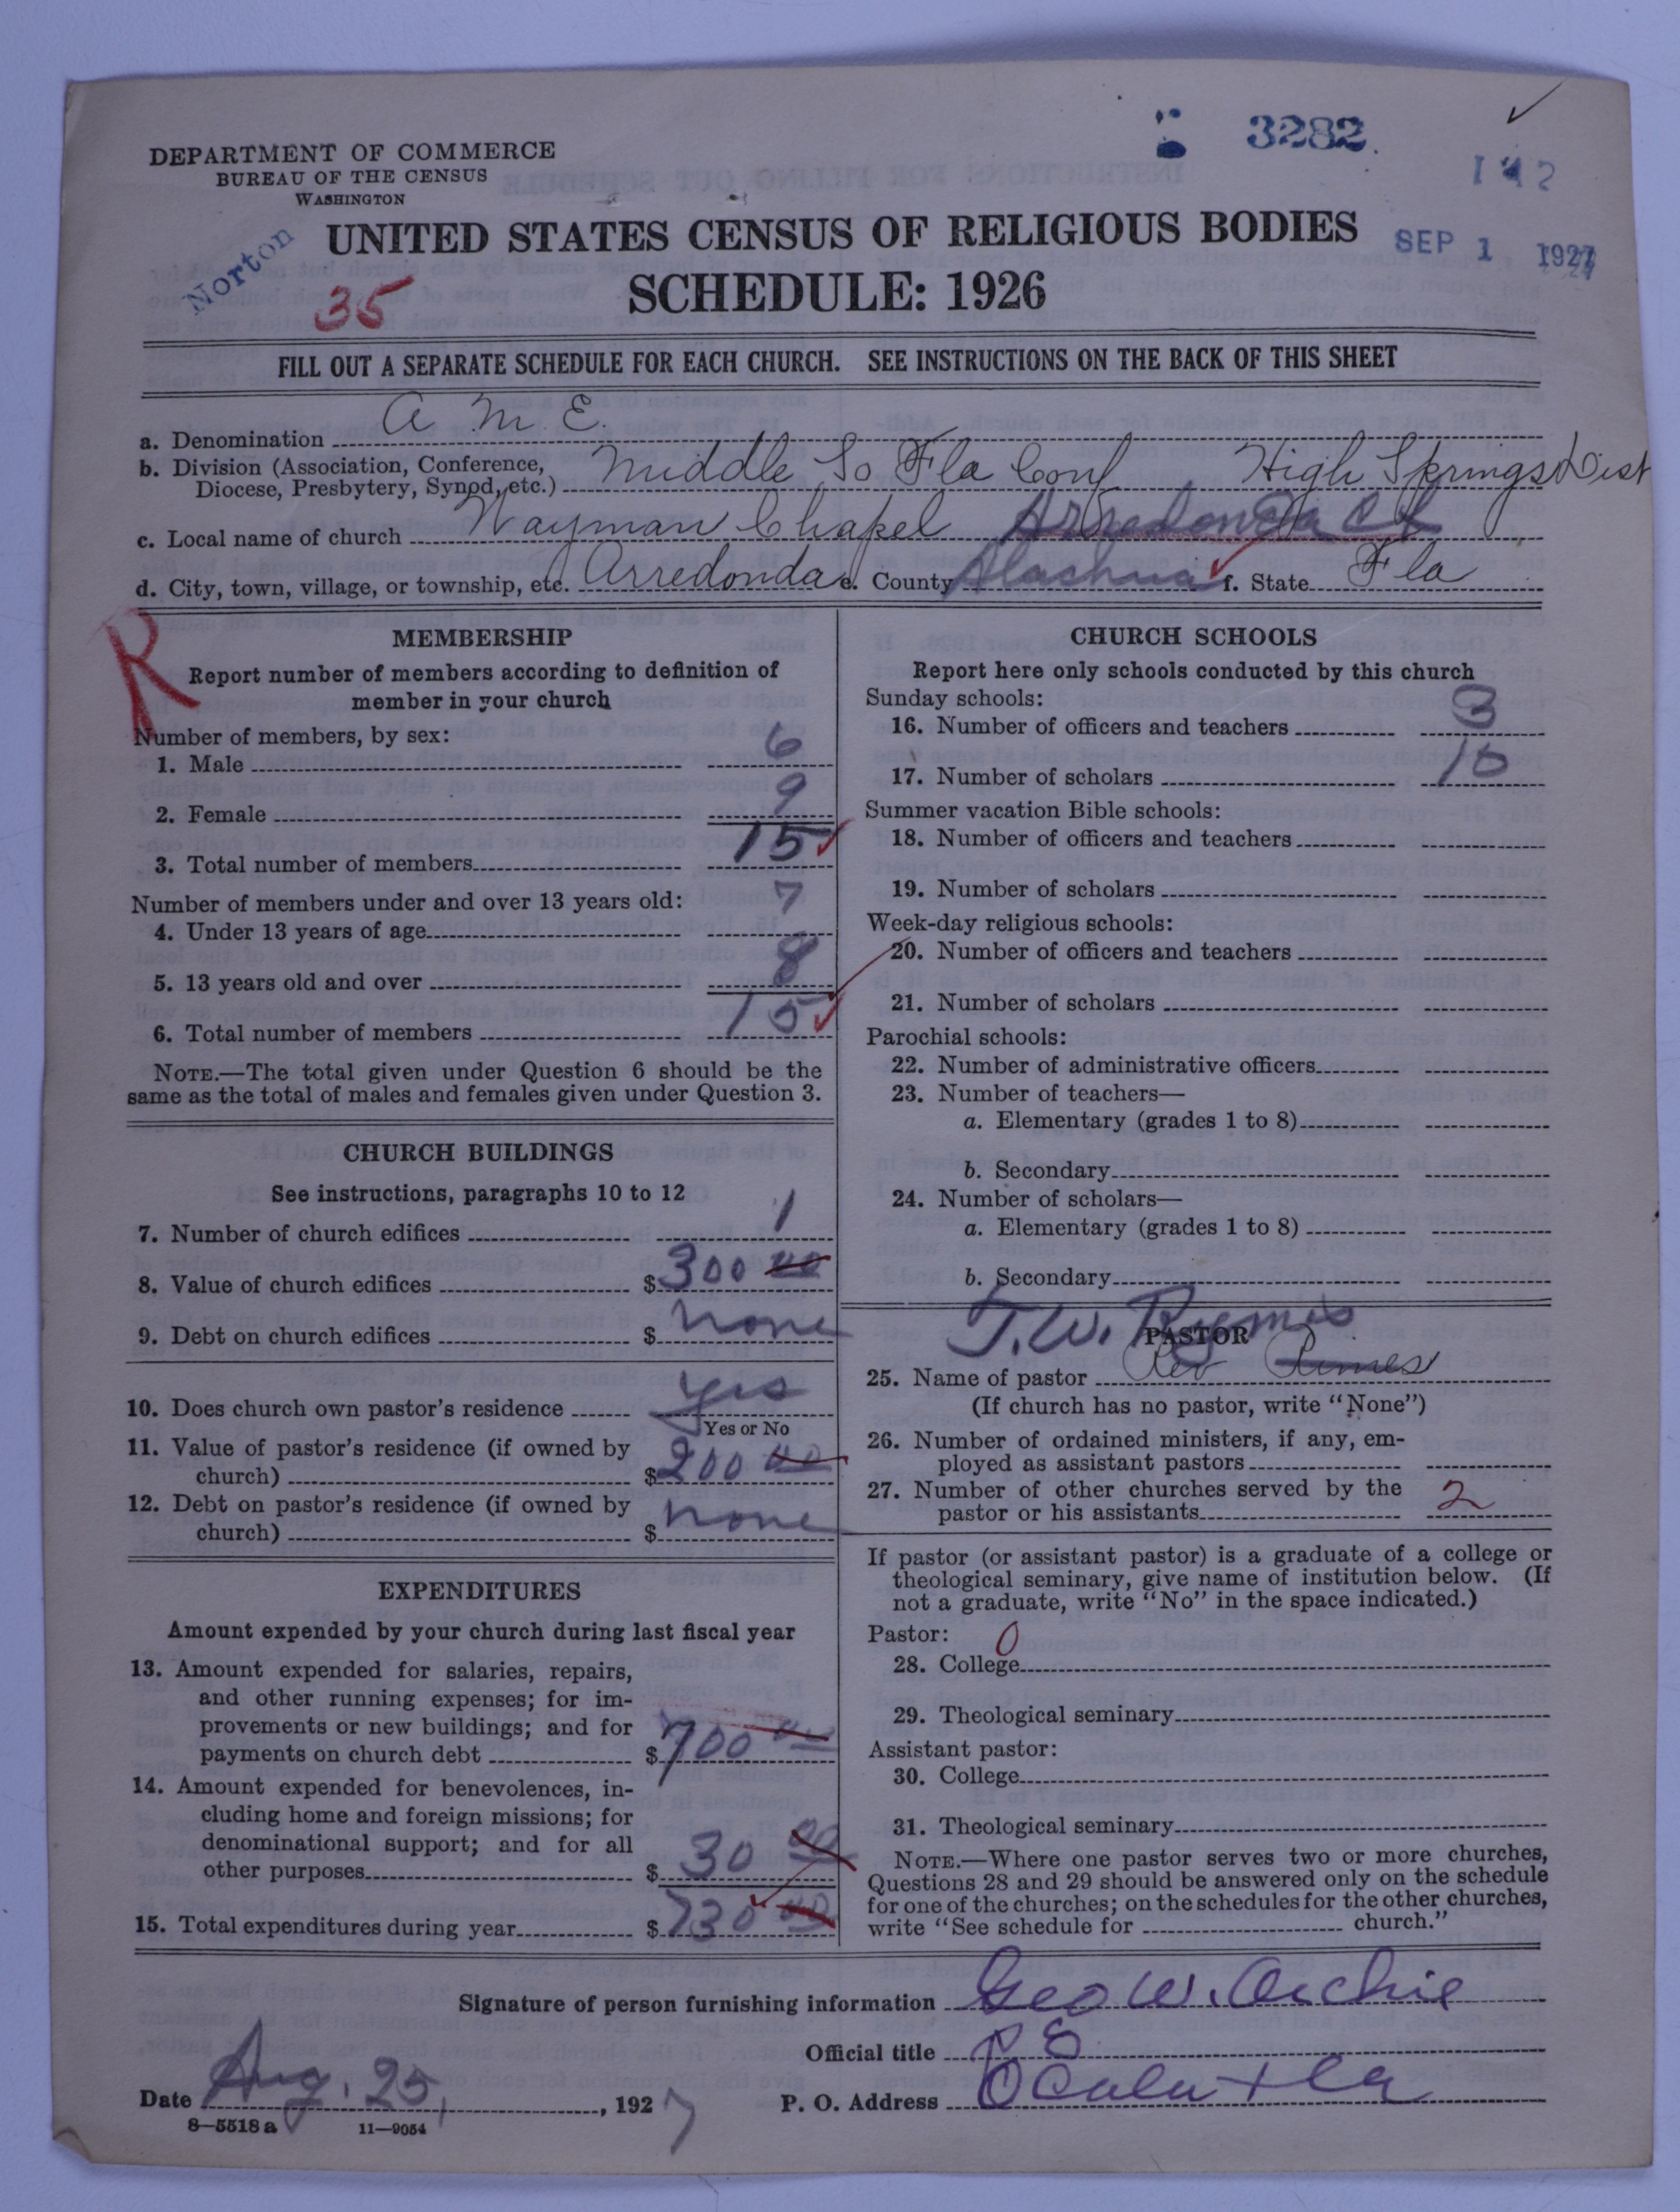 DEPARTMENT OF COMMERCE
BUREAU OF THE CENSUS
WASHINGTON
3282
Norton
35
UNITED STATES CENSUS OF RELIGIOUS BODIES
SEP 1 1927
SCHEDULE: 1926
FILL OUT A SEPARATE SCHEDULE FOR EACH CHURCH. SEE INSTRUCTIONS ON THE BACK OF THIS SHEET
a. Denomination A. M. E.
b. Division (Association, Conference, Diocese, Presbytery, Synod, etc.) Middle So Fla Conf High Springs Dist
c. Local name of church Wayman Chapel Arredonda
d. City, town, village, or township, etc. Arredonda e. County Alachua f. State Fla
R
MEMBERSHIP
Report number of members according to definition of
member in your church
Number of members, by sex:
1. Male 6
2. Female 9
3. Total number of members 15
Number of members under and over 13 years old:
4. Under 13 years of age 7
5. 13 years old and over 8
6. Total number of members 15
NOTE.—The total given under Question 6 should be the
same as the total of males and females given under Question 3.
CHURCH BUILDINGS
See instructions, paragraphs 10 to 12
7. Number of church edifices 1
8. Value of church edifices $300 00
9. Debt on church edifices $ none
10. Does church own pastor's residence yes
Yes or No
11. Value of pastor's residence (if owned by
church) $200 00
12. Debt on pastor's residence (if owned by
church) $ none
EXPENDITURES
Amount expended by your church during last fiscal year
13. Amount expended for salaries, repairs,
and other running expenses; for im-
provements or new buildings; and for
payments on church debt $700 00
14. Amount expended for benevolences, in-
cluding home and foreign missions; for
denominational support; and for all
other purposes $30 00
15. Total expenditures during year $730 00
CHURCH SCHOOLS
Report here only schools conducted by this church
Sunday schools:
16. Number of officers and teachers 3
17. Number of scholars 10
Summer vacation Bible schools:
18. Number of officers and teachers
19. Number of scholars
Week-day religious schools:
20. Number of officers and teachers
21. Number of scholars
Parochial schools:
22. Number of administrative officers
23. Number of teachers—
a. Elementary (grades 1 to 8)
b. Secondary
24. Number of scholars—
a. Elementary (grades 1 to 8)
b. Secondary
T. W.
PASTOR
25. Name of pastor Rev Rimes
(If church has no pastor, write "None")
26. Number of ordained ministers, if any, em-
ployed as assistant pastors
27. Number of other churches served by the
pastor or his assistants 2
If pastor (or assistant pastor) is a graduate of a college or
theological seminary, give name of institution below. (If
not a graduate, write "No" in the space indicated.)
Pastor: 0
28. College
29. Theological seminary
Assistant pastor:
30. College
31. Theological seminary
NOTE.—Where one pastor serves two or more churches,
Questions 28 and 29 should be answered only on the schedule
for one of the churches; on the schedules for the other churches,
write "See schedule for church."
Signature of person furnishing information Geo W. Archie
Official title P E
Date Aug. 25, 1927 P. O. Address Ocala Fla
8—5518 a 11—9054